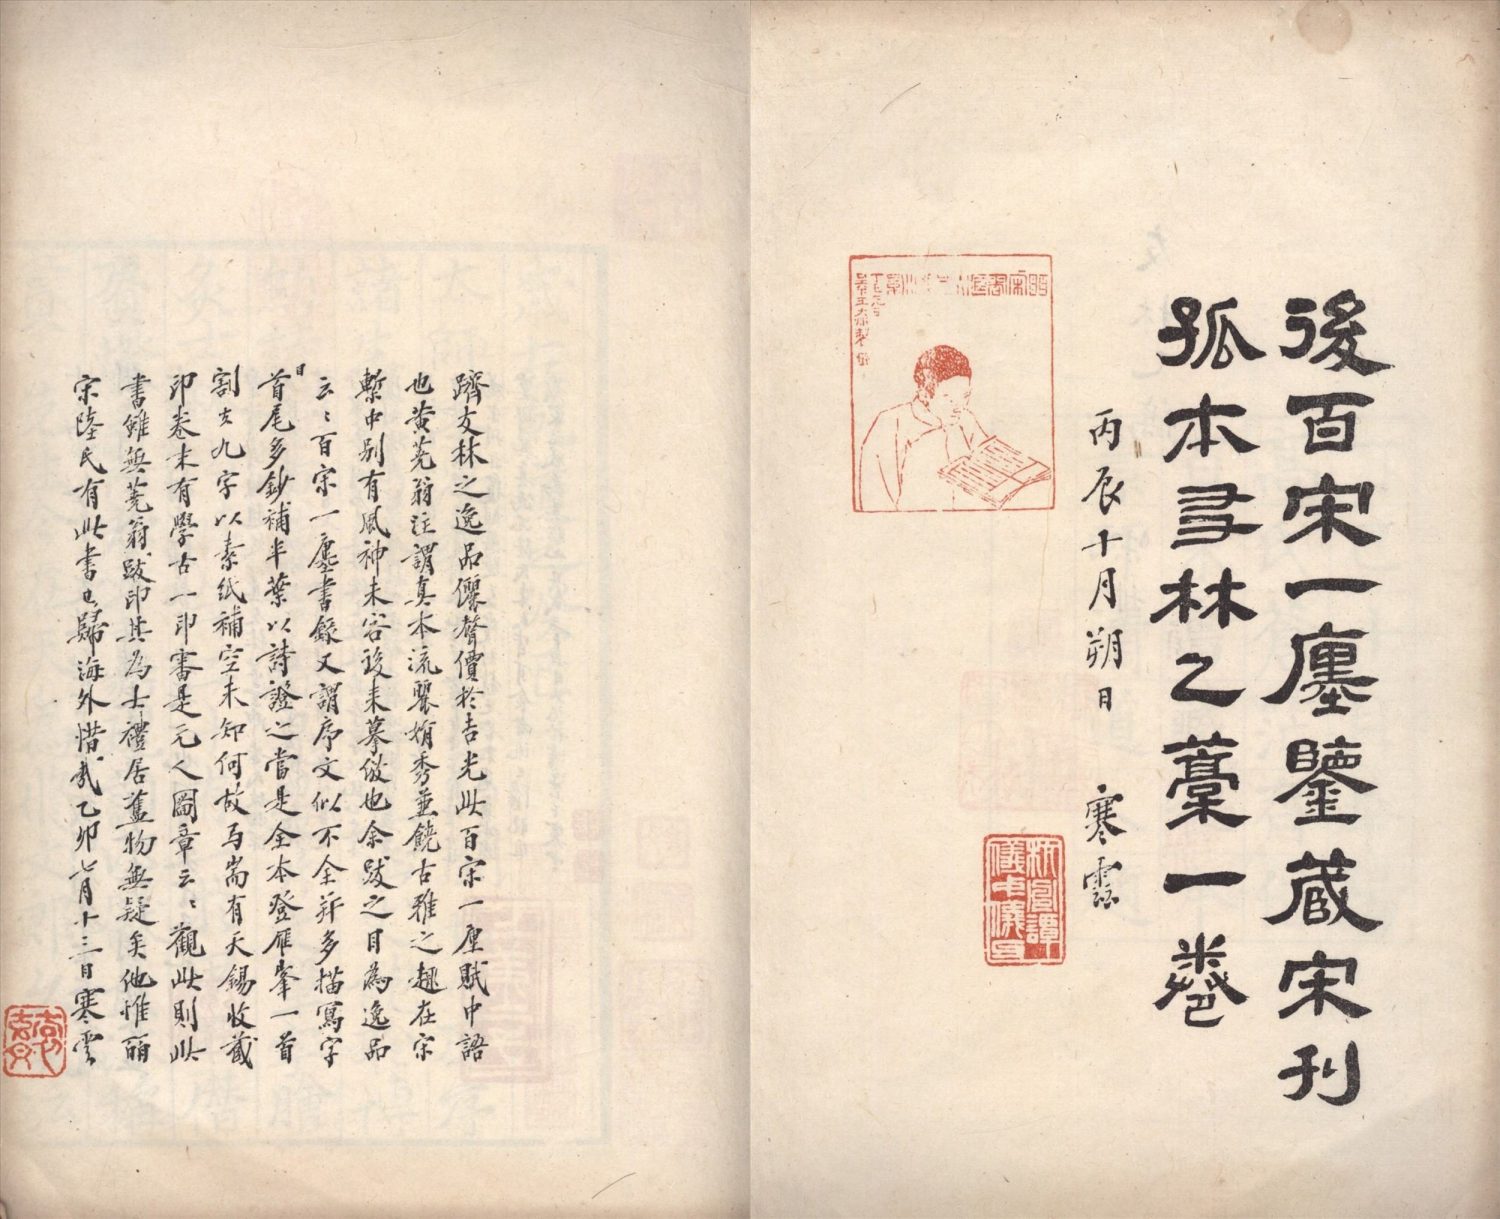 後百宋一廛鑒藏宋刊
孤本友林乙藁一卷
丙辰十月朔日 寒雲
躋友林之逸品儷聲價於吉光此百宋一廛賦中語
也黃蕘翁注謂真本流麗娟秀兼饒古雅之趣在宋
槧中別有風神未容後來摹倣也余跋之目為逸品
云〻百宋一廛書錄又謂序文似不全并多描寫字
首尾多鈔補半葉以詩證之當是全本登雁峯一首
割去九字以素紙補空未知何故耑有天錫收藏
印卷末有學古一印審是元人圖章云〻觀此則此
書雖無蕘翁跋印其為士禮居舊物無疑矣他惟皕
宋陸氏有此書已歸海外惜哉乙卯七月十三日寒雲